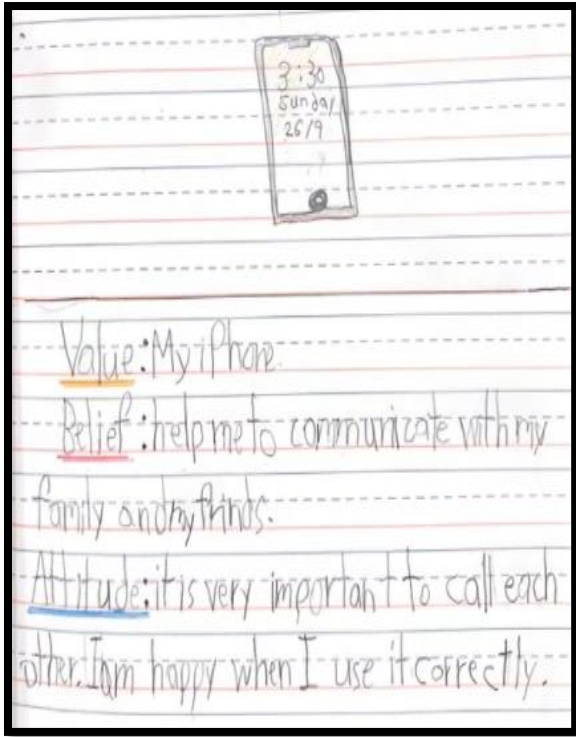 3:30
Sunday
26/9
Value: My iPhone.
Belief: help me to communicate with my
family and my frinds.
Attitude: it is very important to call each
other. I am happy when I use it correctly.